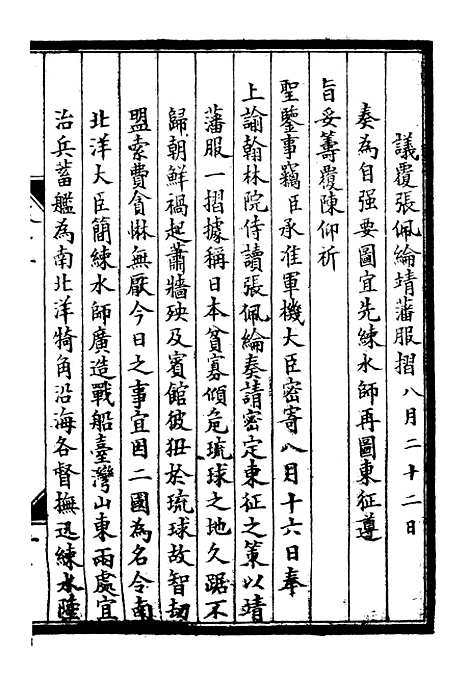 議覆張佩綸靖藩服摺八月二十二日
奏為自强要圖宜先練水師再圖東征遵
旨妥籌覆陳仰祈
聖鑒事竊臣承准軍機大臣密寄八月十六日奉
上諭翰林院侍讀張佩綸奏請密定東征之策以靖
藩服一摺據稱日本貧寡傾危琉球之地久踞不
歸朝鮮禍起蕭牆殃及賓館彼狃於琉球故智劫
盟索費貪惏無厭今日之事宜因二國為名令南
北洋大臣簡練水師廣造戰船臺灣山東兩處宜
治兵蓄艦為南北洋犄角沿海各督撫迅練水陸